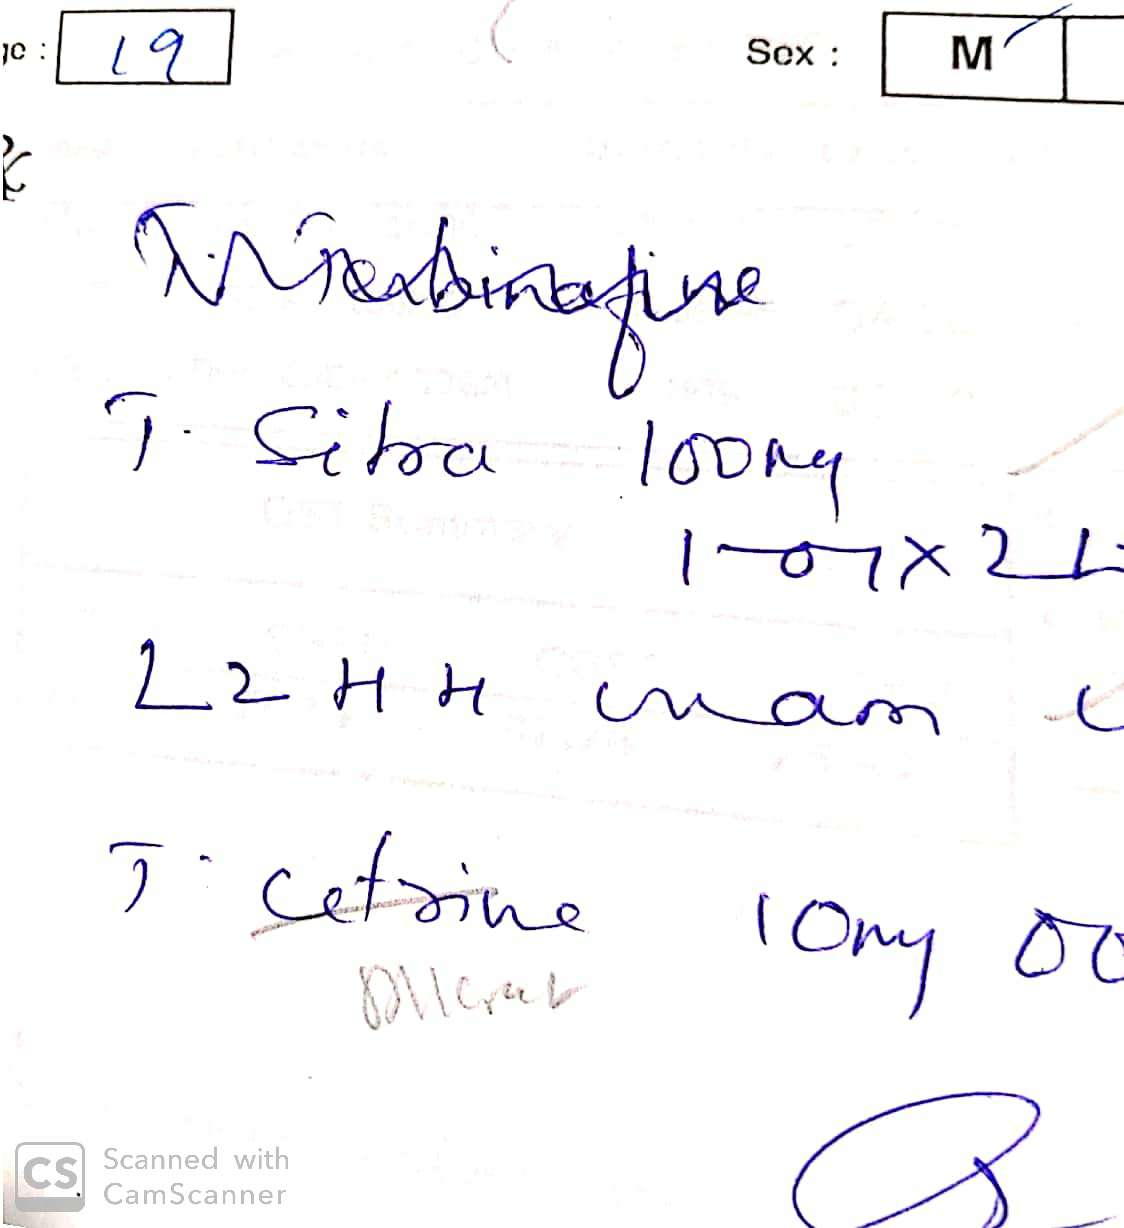 ge : 19 Sex : M
T. Terbinafine
T. Sitra 100mg
1-0-1 x 2
LZHH cream
T. Cetrine 10mg
CS Scanned with
CamScanner